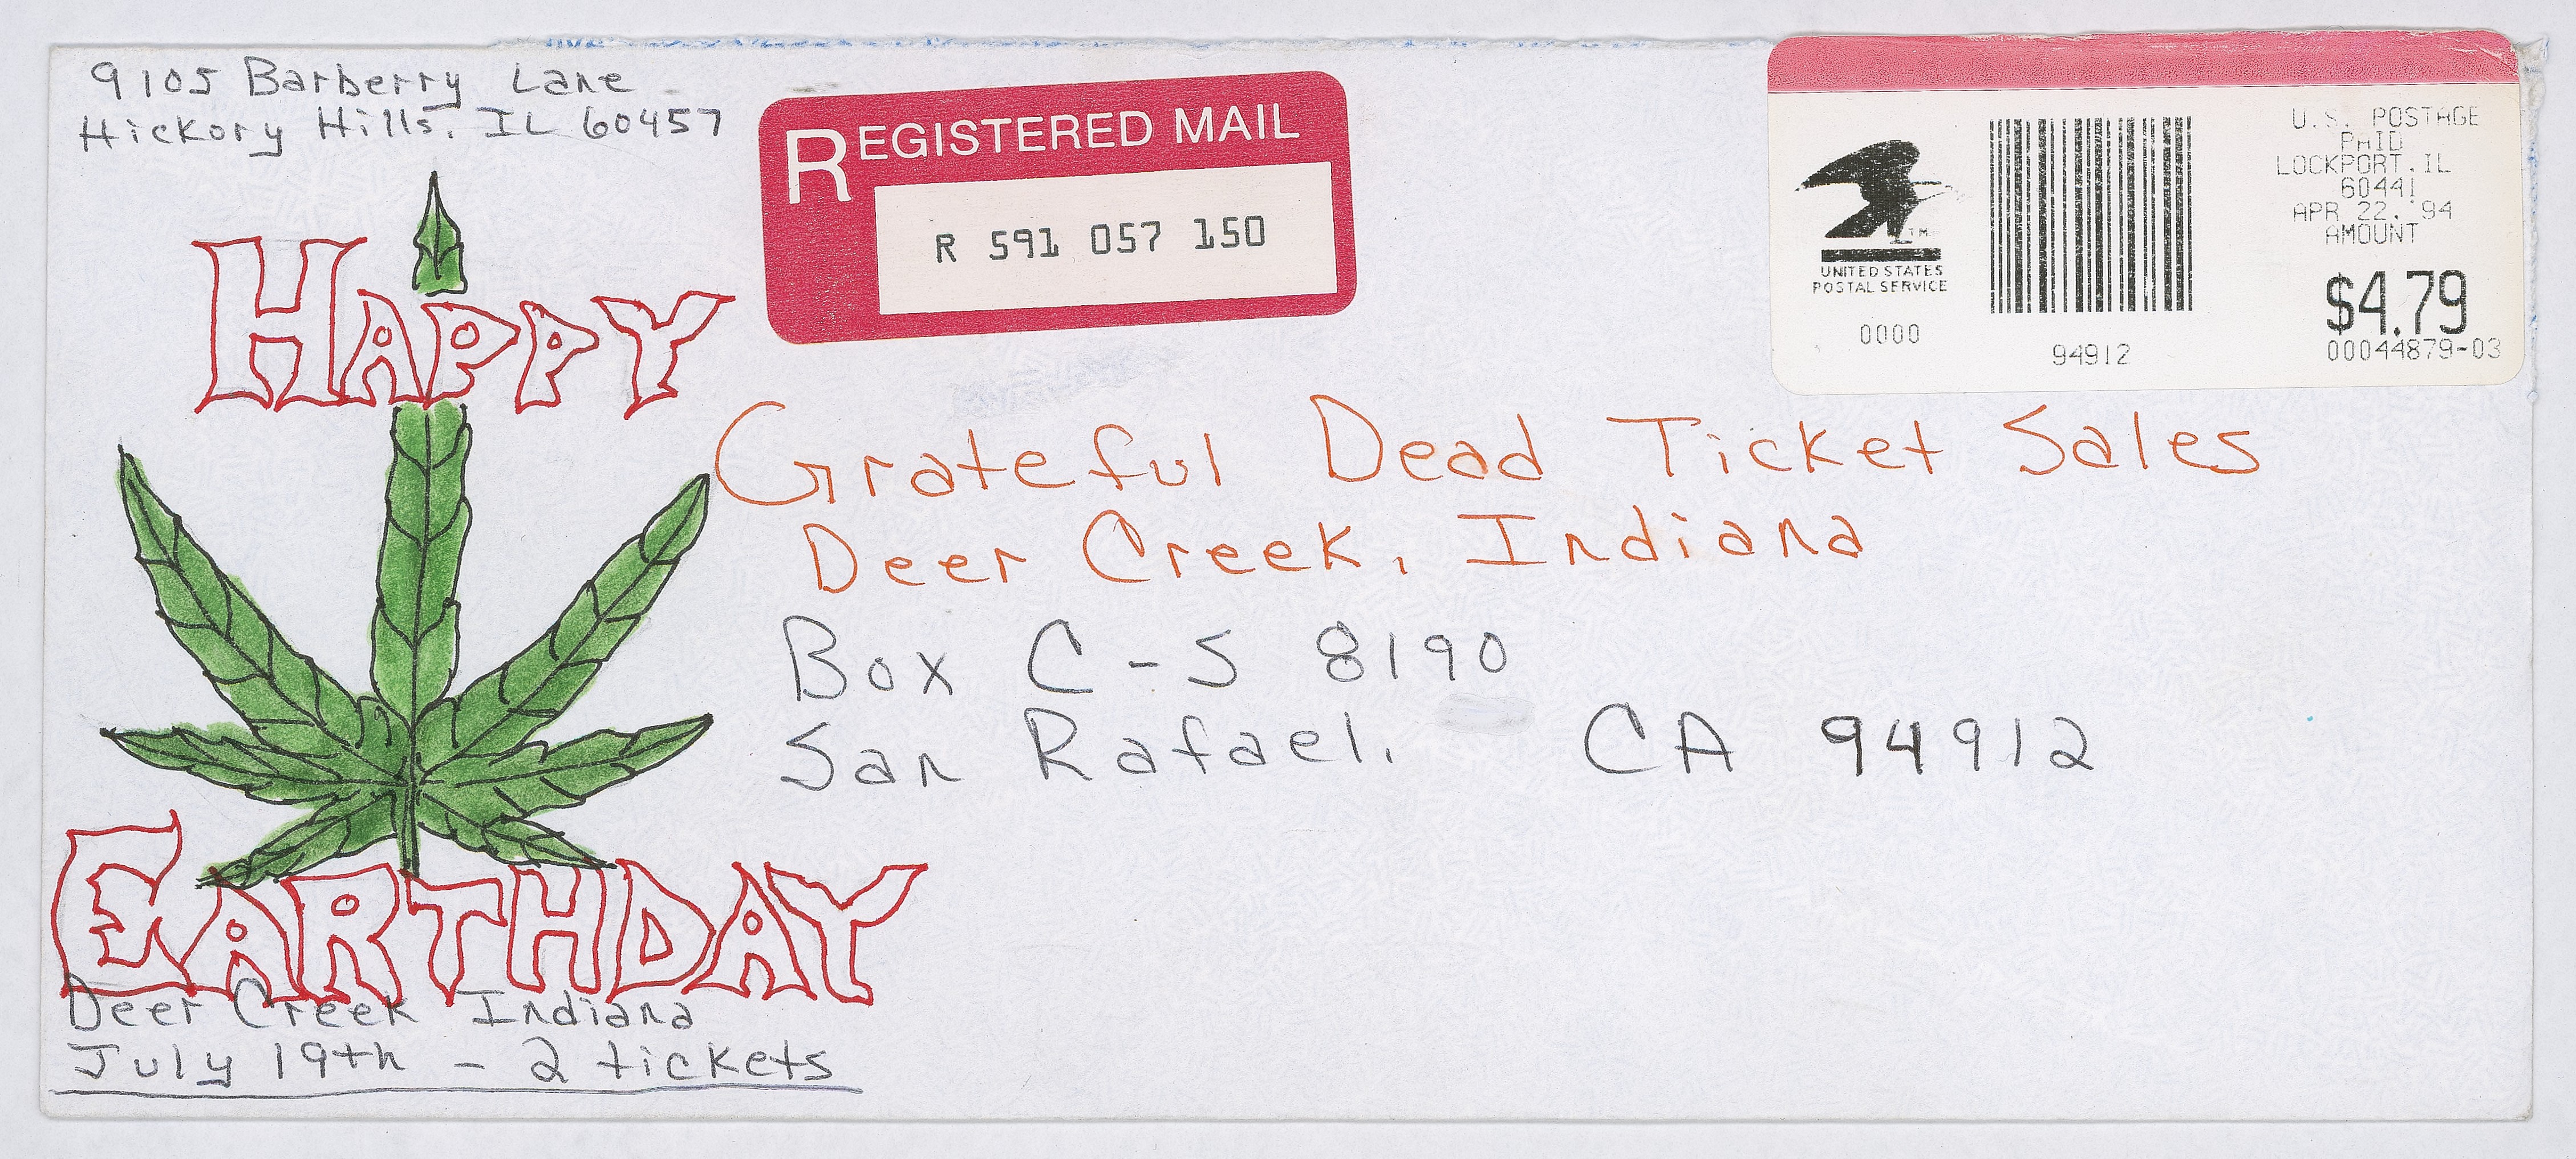 9105 Barberry Lane
Hickory Hills, IL 60457
REGISTERED MAIL
R 591 057 150
UNITED STATES
POSTAL SERVICE
TM
0000
94912
U.S. POSTAGE
PAID
LOCKPORT.IL
60441
APR 22.'94
AMOUNT
$4.79
00044879-03
HAPPY
EARTHDAY
Grateful Dead Ticket Sales
Deer Creek, Indiana
Box C-S 8190
San Rafael, CA 94912
Deer Creek Indiana
July 19th - 2 tickets